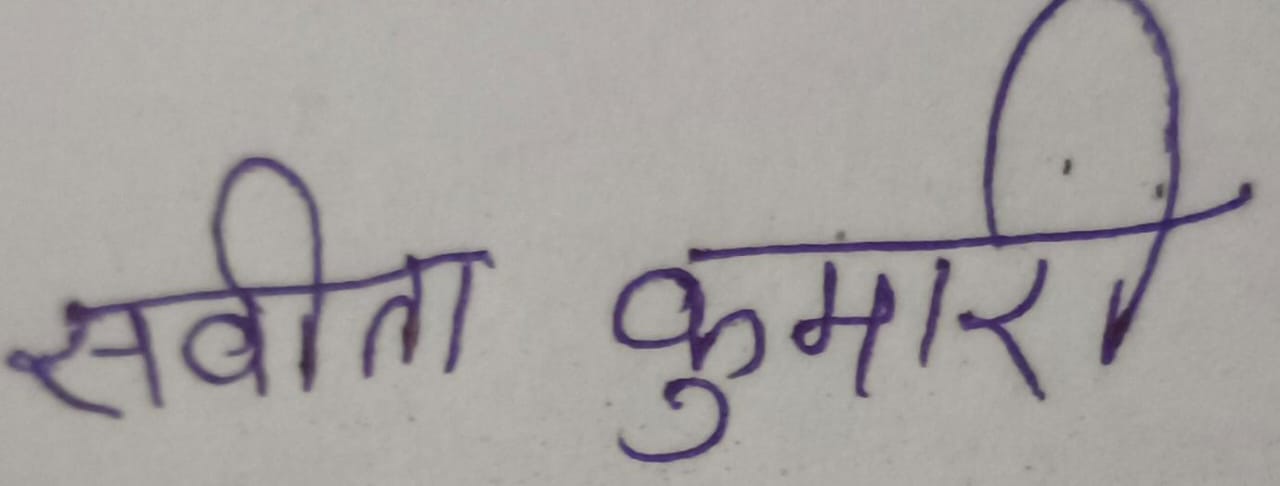 सवीता कुमारी